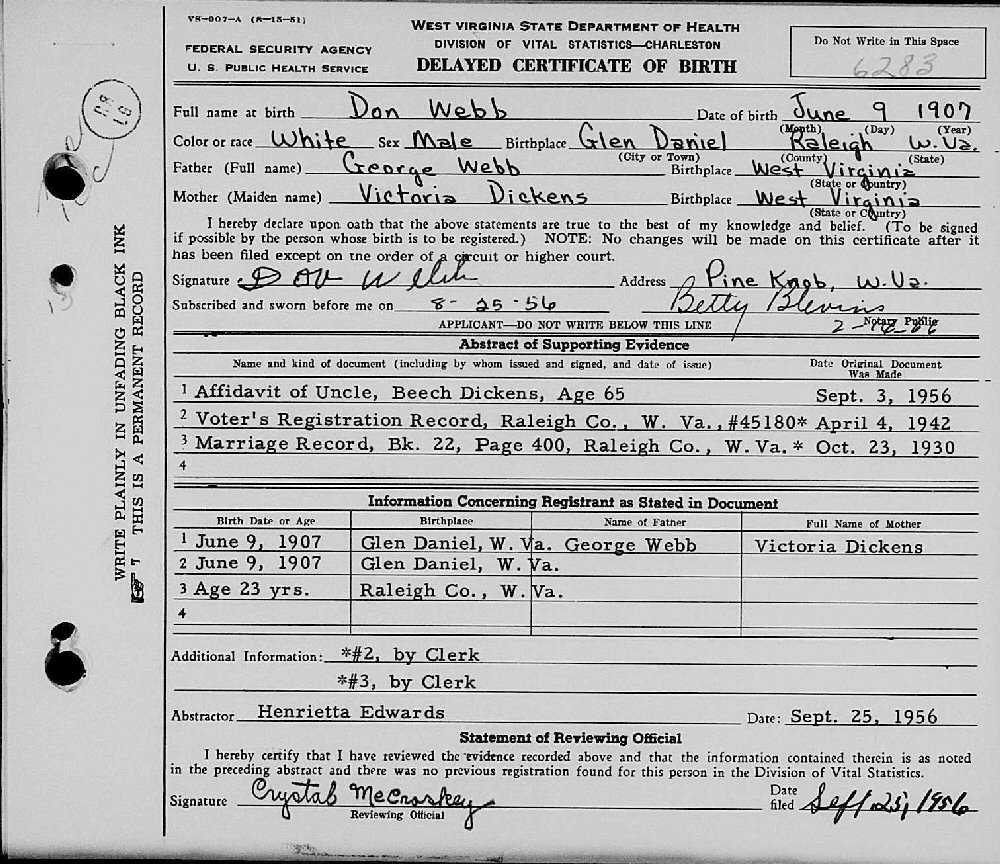 VS-007-A (8-15-51)
WEST VIRGINIA STATE DEPARTMENT OF HEALTH
FEDERAL SECURITY AGENCY
DIVISION OF VITAL STATISTICS—CHARLESTON
U. S. PUBLIC HEALTH SERVICE
DELAYED CERTIFICATE OF BIRTH
Do Not Write in This Space
6283
Full name at birth Don Webb Date of birth June 9 1907
(Month) (Day) (Year)
Color or race White Sex Male Birthplace Glen Daniel Raleigh W. Va.
(City or Town) (County) (State)
Father (Full name) George Webb Birthplace West Virginia
(State or Country)
Mother (Maiden name) Victoria Dickens Birthplace West Virginia
(State or Country)
I hereby declare upon oath that the above statements are true to the best of my knowledge and belief. (To be signed
if possible by the person whose birth is to be registered.) NOTE: No changes will be made on this certificate after it
has been filed except on the order of a circuit or higher court.
Signature Don Webb Address Pine Knob, W. Va.
Subscribed and sworn before me on 8-25-56 Betty Blevins
Notary Public
APPLICANT—DO NOT WRITE BELOW THIS LINE
Abstract of Supporting Evidence
Name and kind of document (including by whom issued and signed, and date of issue) Date Original Document
Was Made
1 Affidavit of Uncle, Beech Dickens, Age 65 Sept. 3, 1956
2 Voter's Registration Record, Raleigh Co., W. Va., #45180* April 4, 1942
3 Marriage Record, Bk. 22, Page 400, Raleigh Co., W. Va. * Oct. 23, 1930
4
Information Concerning Registrant as Stated in Document
Birth Date or Age Birthplace Name of Father Full Name of Mother
1 June 9, 1907 Glen Daniel, W. Va. George Webb Victoria Dickens
2 June 9, 1907 Glen Daniel, W. Va.
3 Age 23 yrs. Raleigh Co., W. Va.
4
Additional Information: *#2, by Clerk
*#3, by Clerk
Abstractor Henrietta Edwards Date: Sept. 25, 1956
Statement of Reviewing Official
I hereby certify that I have reviewed the evidence recorded above and that the information contained therein is as noted
in the preceding abstract and there was no previous registration found for this person in the Division of Vital Statistics.
Signature Crystal McCroskey Date
filed Sept 25, 1956
Reviewing Official
WRITE PLAINLY IN UNFADING BLACK INK
THIS IS A PERMANENT RECORD